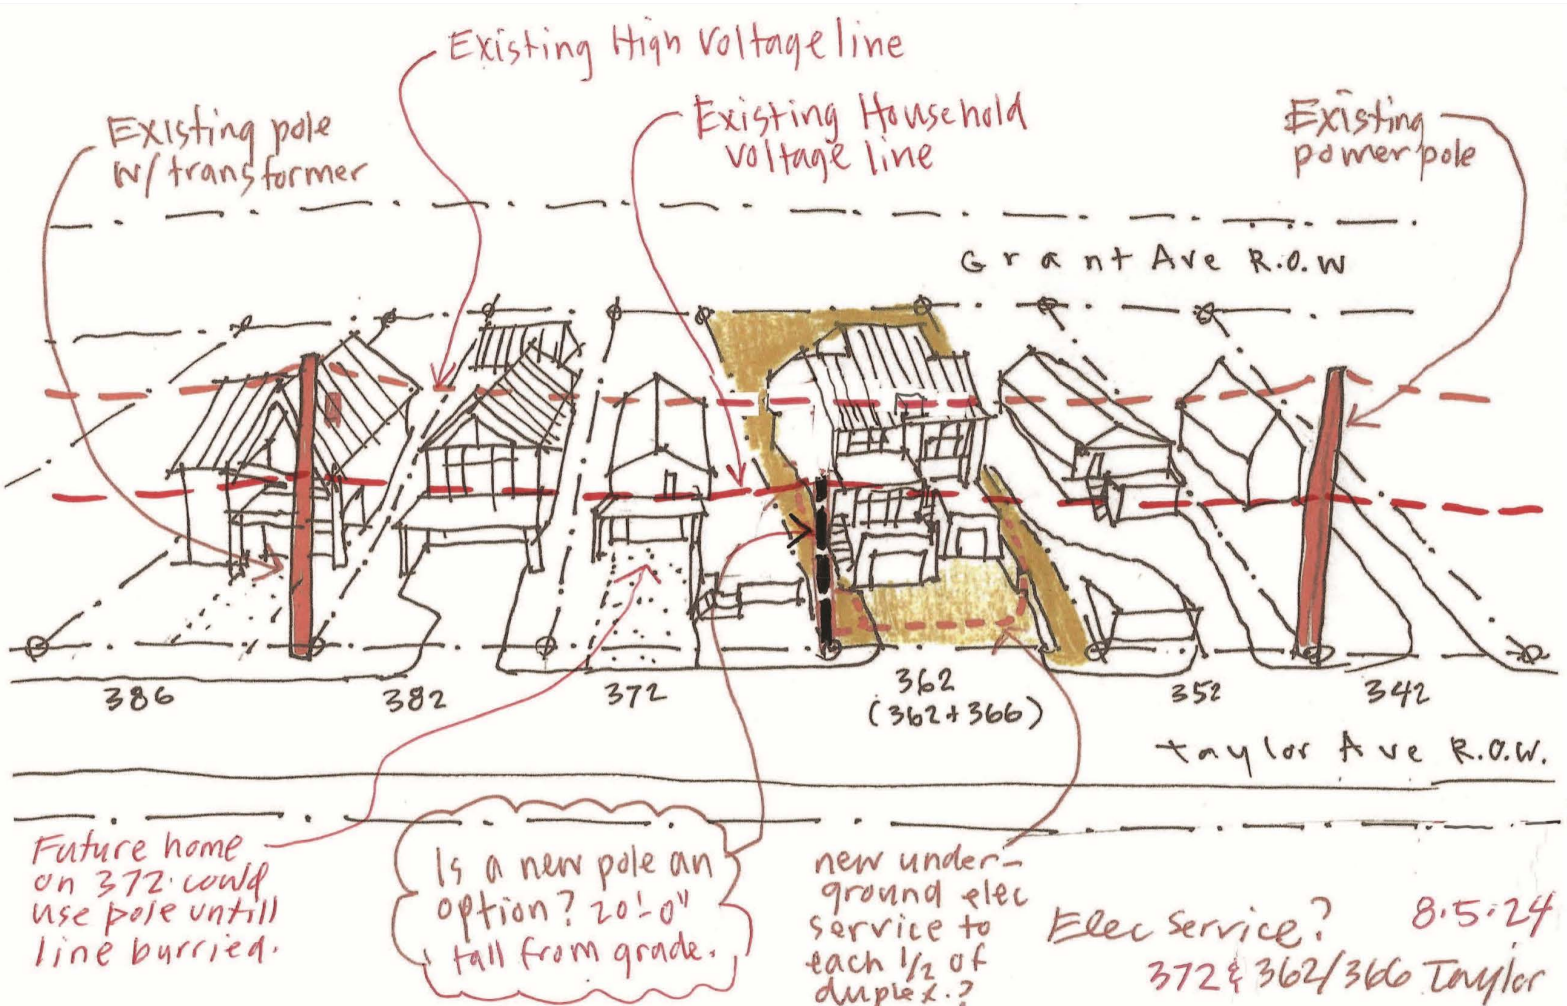 Existing High Voltage line
Existing pole
w/ transformer
Existing Household
voltage line
Existing
power pole
Grant Ave R.O.W
386
382
372
362
(362+366)
352
342
Taylor Ave R.O.W.
Future home
on 372 could
use pole untill
line burried.
Is a new pole an
option? 20'-0"
tall from grade.
new under-
ground elec
service to
each 1/2 of
duplex.?
Elec Service?
8.5.24
372 & 362/366 Taylor